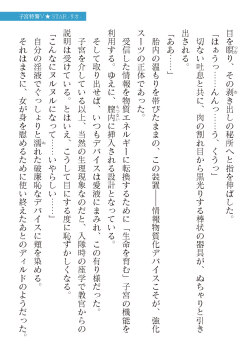 目を瞑り、その剥き出しの秘所へと指を伸ばした。
「はぁうっ……んんっ……う、くうっ」
切ない吐息と共に、肉の割れ目から黒光りする棒状の器具が、ぬちゃりと引き
出される。
「ああ……」
胎内の温もりを帯びたままの、この装置――情報物質化デバイスこそが、強化
スーツの正体であった。
受信した情報を物質エネルギーに転換するために「生命を育む」子宮の機能を
利用する。ゆえに、膣内に挿入される設計となっている。
そして取り出せば、いつもデバイスは愛液にまみれ、この有り様だった。
子宮を介している以上、当然の生理現象なのだと、入隊時の座学で教官からの
説明は受けている。とはいえ、こうして目にする度に恥ずかしくなる。
「こんなにヌルヌルになって……」
自分の淫液でぐっしょりと濡れた破廉恥なデバイスに頬を染める。
それはまさに、女が身を慰めるために使い終えたあとのディルドのようだった。